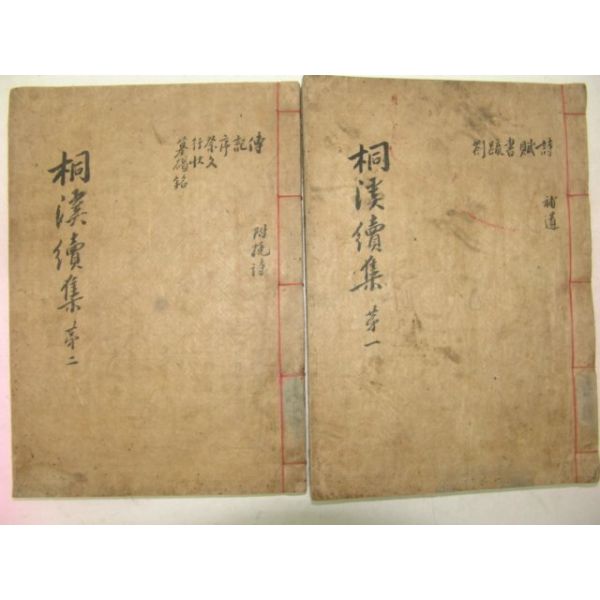 詩賦書疏箚
補遺
桐溪續集 苐一
傳
記
序
祭文
行狀
墓碣銘
附挽詩
桐溪續集 苐二